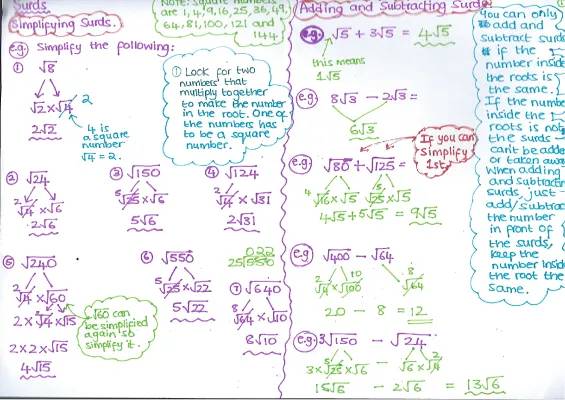 Surds
Simplifying Surds.
Note: square numbers
are 1, 4, 9, 16, 25, 36, 49,
64, 81, 100, 121 and
144
e.g. Simplify the following:
① √8
√2 x √4 2
2√2
4 is
a square
number
√4 = 2.
① Look for two
numbers that
multiply together
to make the number
in the root. One of
the numbers has
to be a square
number.
② √24
2 √4 x √6
2√6
③ √150
5 √25 x √6
5√6
④ √124
2 √4 x √31
2√31
⑤ √240
2 √4 x √60
2 x 2 √4 x √15
2 x 2 x √15
4√15
√60 can
be simplified
again so
simplify it.
⑥ √550
5 √25 x √22
5√22
022
25 550
⑦ √640
8 √64 x √10
8√10
Adding and Subtracting Surds
e.g. √5 + 3√5 = 4√5
this means
1√5
e.g. 8√3 − 2√3 =
6√3
If you can
simplify
1st.
e.g. √80 + √125 =
4 √16 x √5 5 √25 x √5
4√5 + 5√5 = 9√5
e.g. √400 − √64
2 √4 x √100 10 8 √64
20 − 8 = 12
e.g. 3√150 − √24
3 x 5 √25 x √6 √6 x √4 2
15√6 − 2√6 = 13√6
You can only
add and
subtract surds
if the
number inside
the roots is
the same.
If the number
inside the
roots is not
the surds
cant be added
or taken away
When adding
and subtracting
surds, just
add/subtract
the number
in front of
the surds,
keep the
number inside
the root the
same.